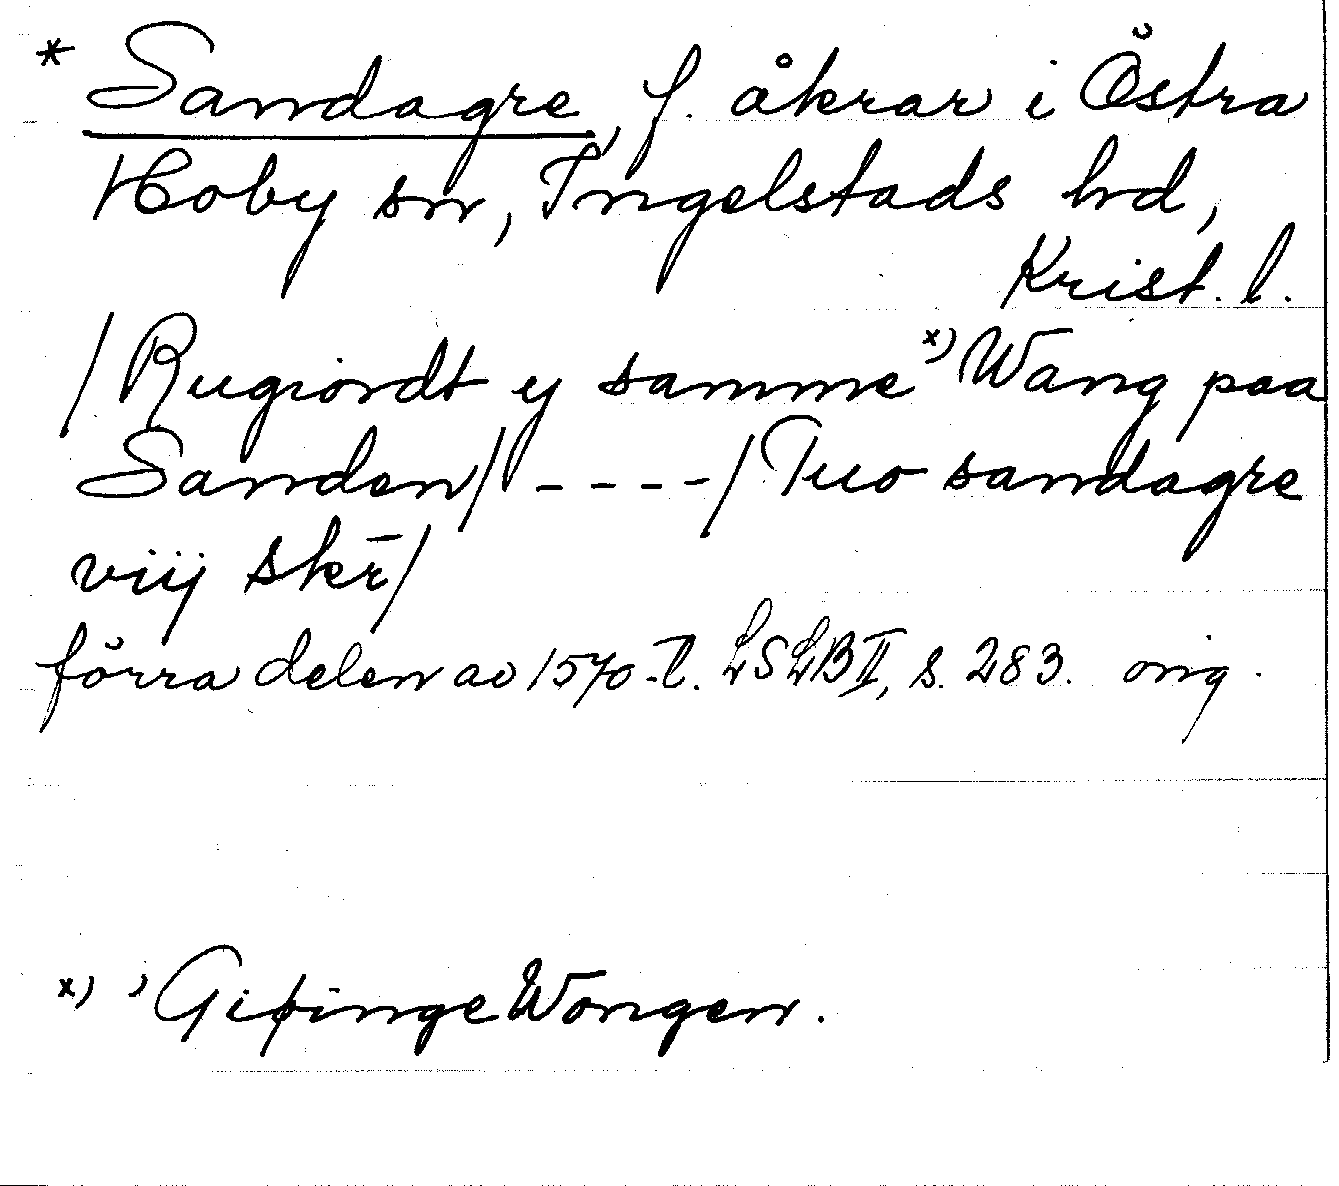 * Sandagre, f. åkrar i Östra
Hoby sn, Ingelstads hd,
Krist. l.
/Rugiordt y samme x) Wang paa
Sanden/ - - - - /Tuo sandagre
viij skr̄/
förra delen av 1570-t. LSLB II, s. 283. orig.
x) , Gisinge Wongen.